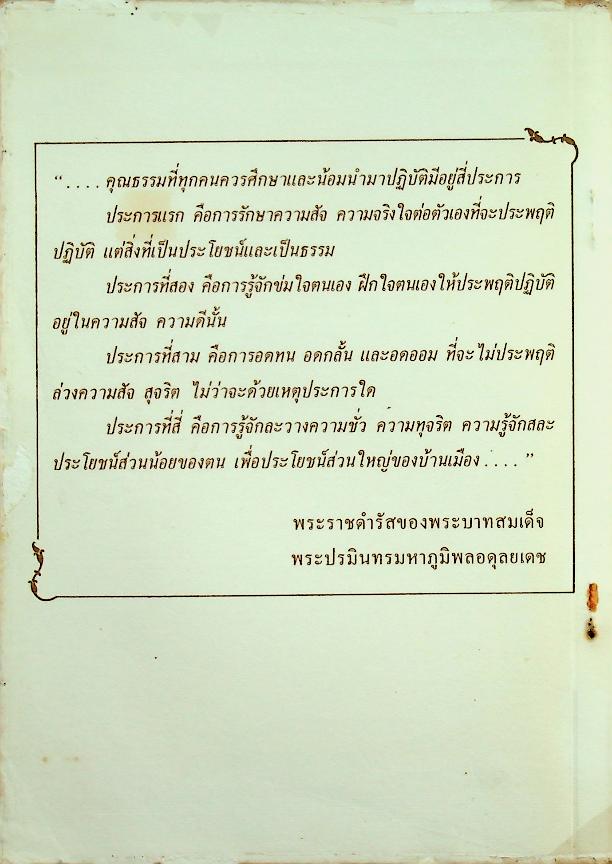 “....คุณธรรมที่ทุกคนควรศึกษาและน้อมนำมาปฏิบัติมีอยู่สี่ประการ
ประการแรก คือการรักษาความสัจ ความจริงใจต่อตัวเองที่จะประพฤติ
ปฏิบัติ แต่สิ่งที่เป็นประโยชน์และเป็นธรรม
ประการที่สอง คือการรู้จักข่มใจตนเอง ฝึกใจตนเองให้ประพฤติปฏิบัติ
อยู่ในความสัจ ความดีนั้น
ประการที่สาม คือการอดทน อดกลั้น และอดออม ที่จะไม่ประพฤติ
ล่วงความสัจ สุจริต ไม่ว่าจะด้วยเหตุประการใด
ประการที่สี่ คือการรู้จักละวางความชั่ว ความทุจริต ความรู้จักสละ
ประโยชน์ส่วนน้อยของตน เพื่อประโยชน์ส่วนใหญ่ของบ้านเมือง....”
พระราชดำรัสของพระบาทสมเด็จ
พระปรมินทรมหาภูมิพลอดุลยเดช